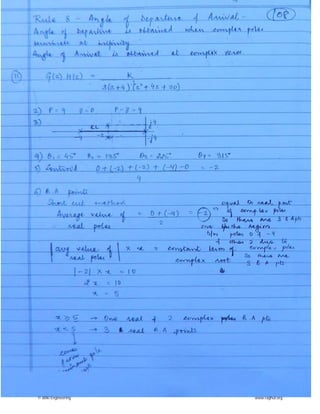 108
Rule 8 - Angle of Departure & Arrival -
Angle of Departure is obtained when complex poles
terminate at infinity
Angle of Arrival is obtained at complex zeros
G(s) H(s) = K
s(s+4)(s²+4s+20)
2) P = 4 Z = 0 P-Z = 4
3)
RL
-4 -2
j4
-j4
4) θ₁ = 45° θ₂ = 135° θ₃ = 225° θ₄ = 315°
5) Centroid 0+(-2)+(-2)+(-4)-0 = -2
4
6) B.A points
Short cut method
Average value of = 0+(-4) = -2
real poles 2
equal to real part
of complex poles
So there are 3 B.A pts
one the region
b/w poles 0 & -4
& other 2 due to
complex poles
So there are
3 B.A pts
| avg value of real poles | × x = constant term of
complex root
|-2| × x = 10
2x = 10
x = 5
x ≥ 5 → One real & 2 complex B.A pts
x < 5 → 3 real B.A points
comes
from
pole